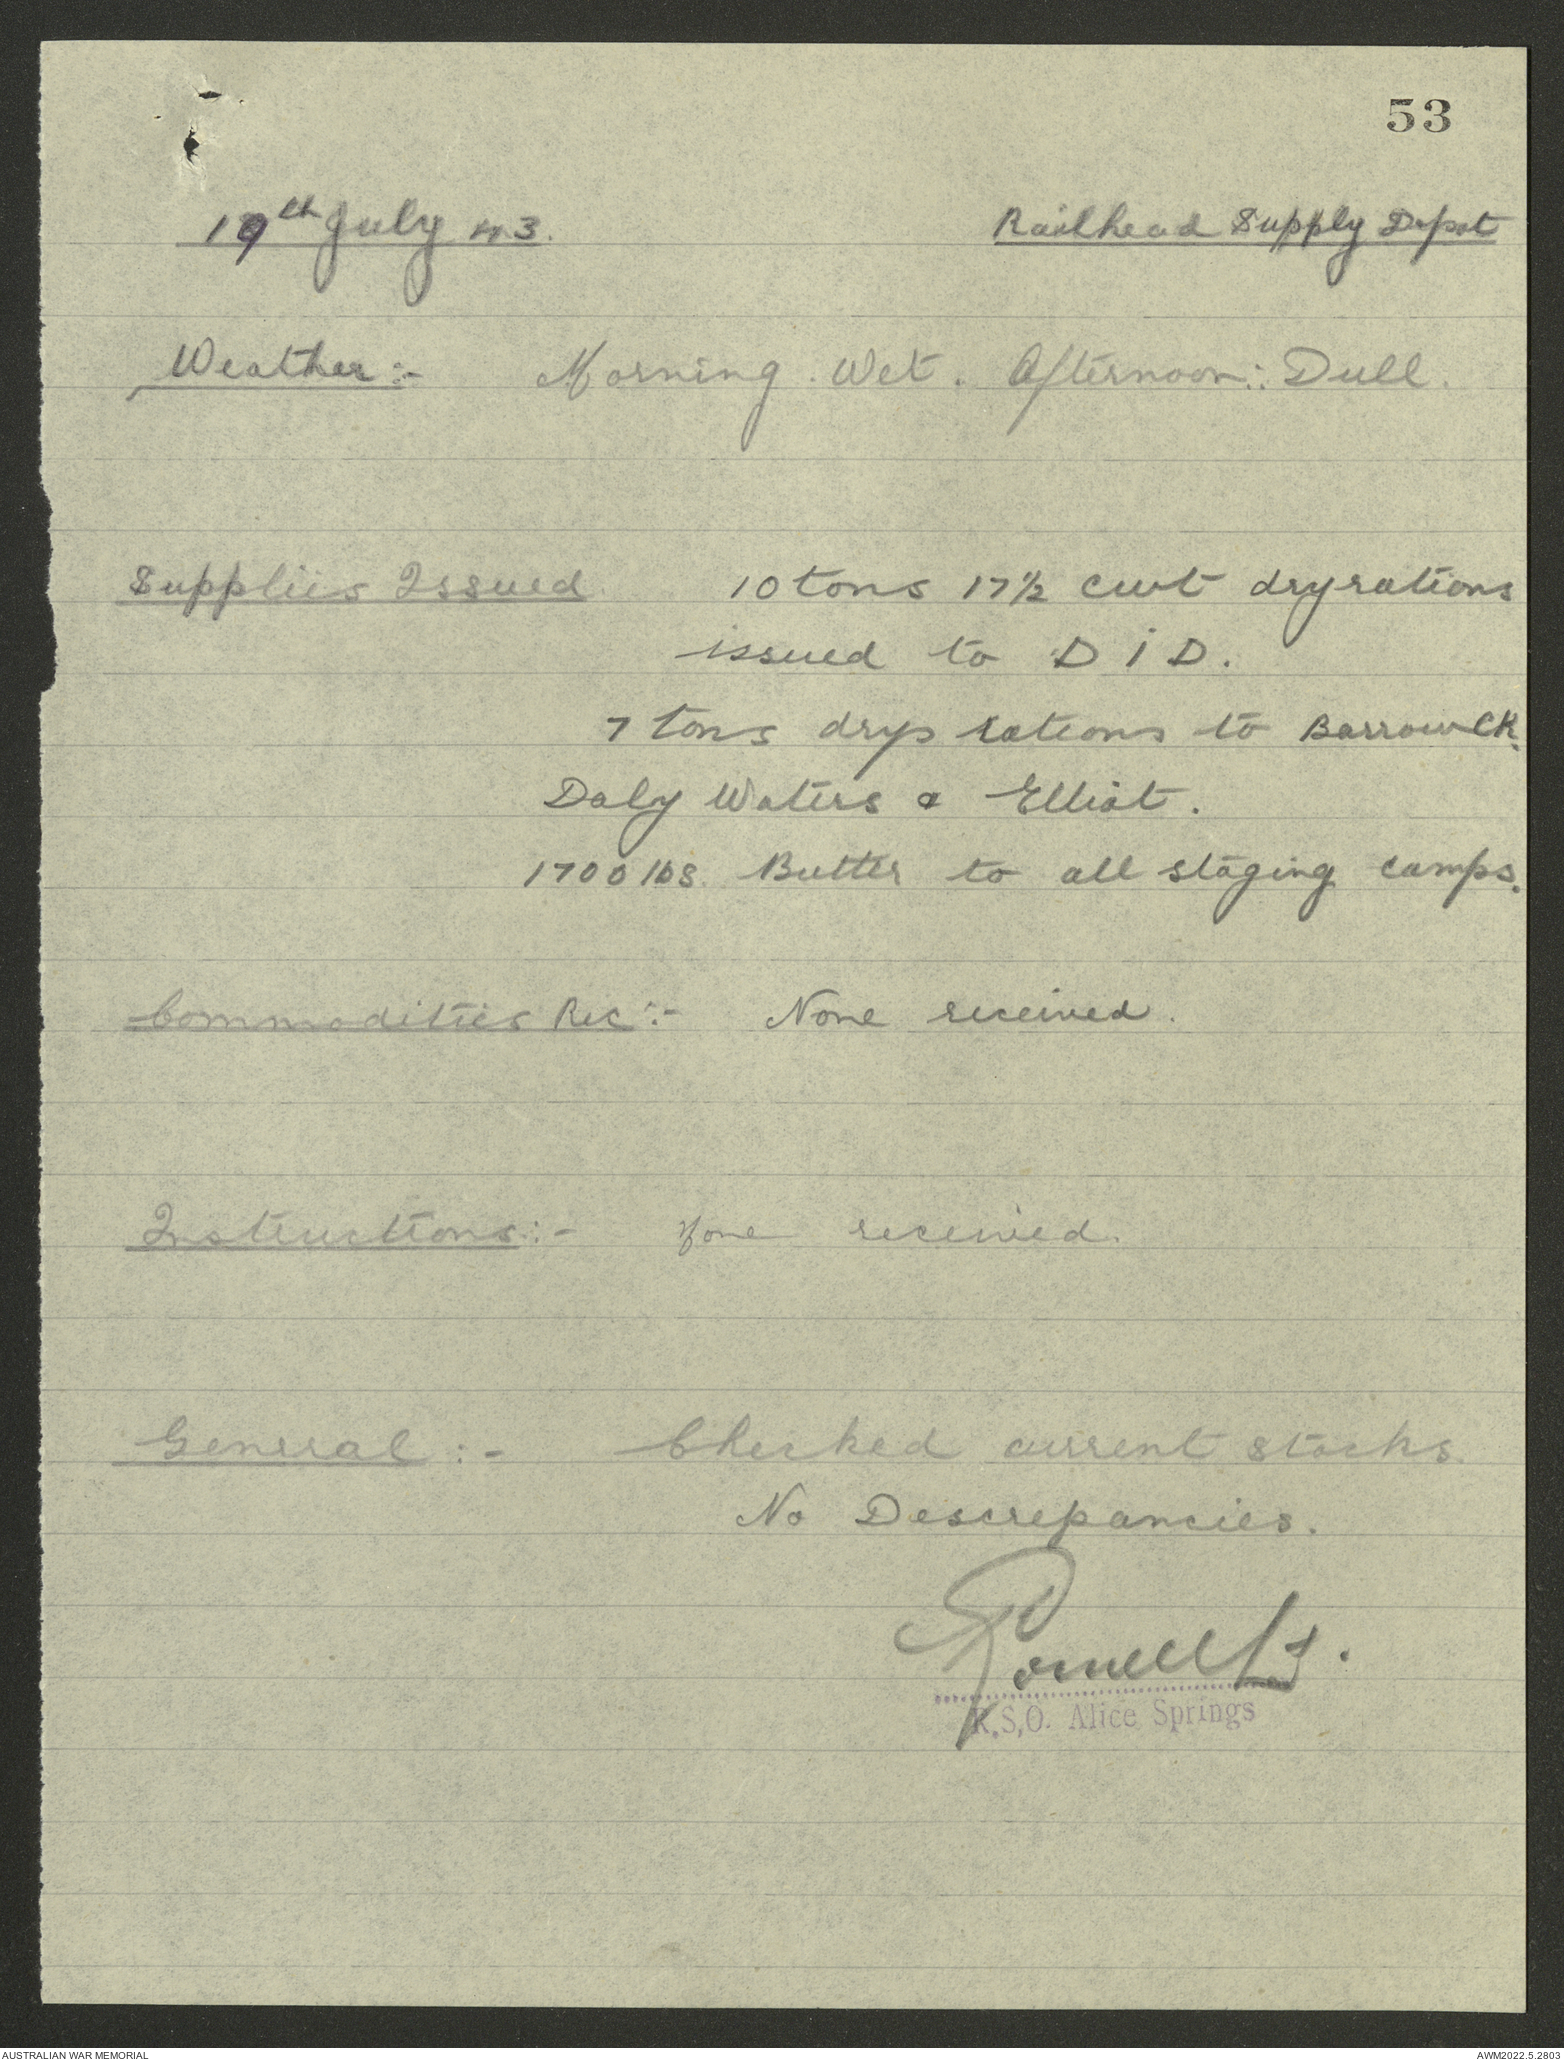 53
19th July 43. Railhead Supply Depot
Weather:- Morning. Wet. Afternoon:. Dull.
Supplies Issued 10 tons 17½ cwt dry rations
issued to D I D.
7 tons dry rations to Barrow CK.
Daly Waters & Elliot.
1700 lbs. Butter to all staging camps.
Commodities Rec:- None received.
Instructions:- None received.
General:- Checked current stocks.
No Descrepancies.
Powell Lt.
R.S.O. Alice Springs
AUSTRALIAN WAR MEMORIAL AWM2022.5.2803